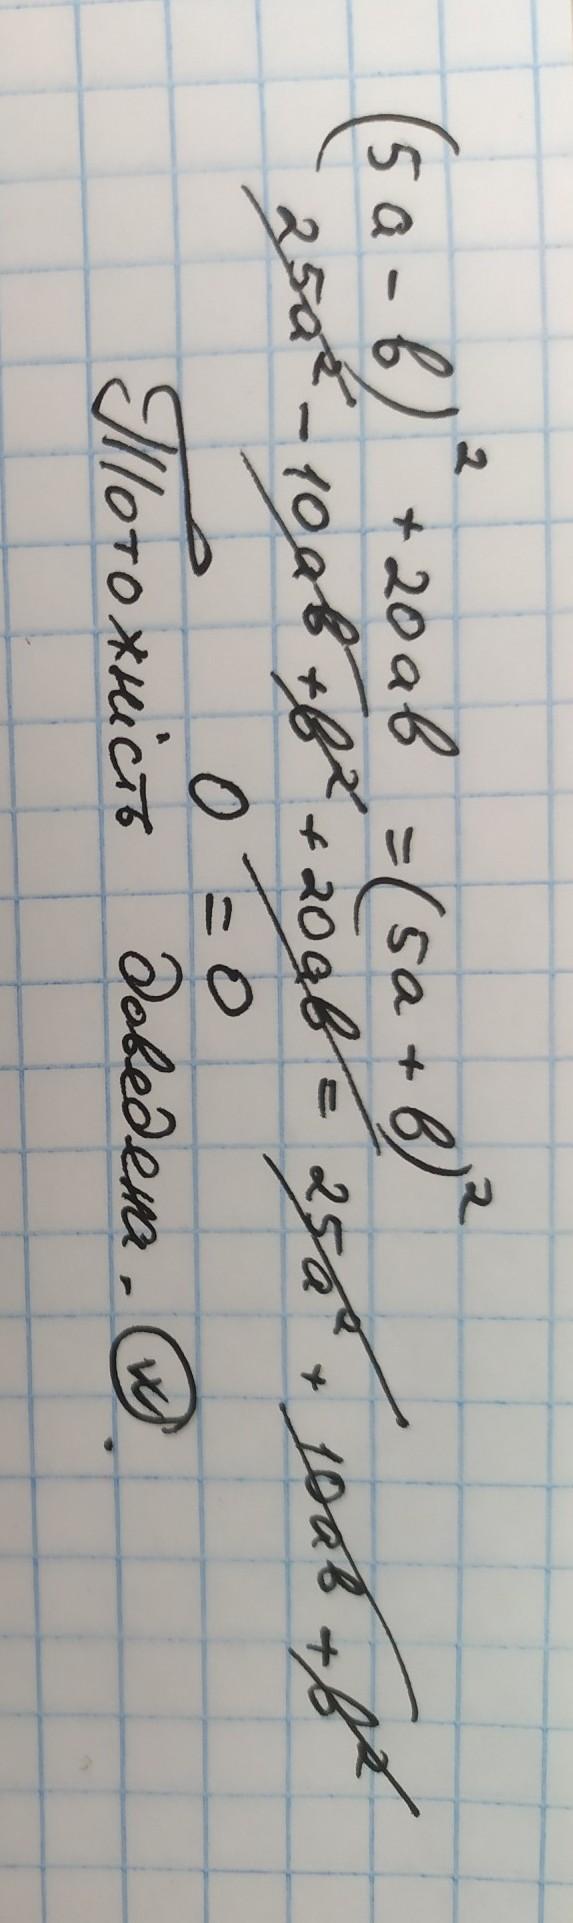 (5a - b)² + 20ab = (5a + b)²
25a² - 10ab + b² + 20ab = 25a² + 10ab + b²
0 = 0
Тотожність доведена.